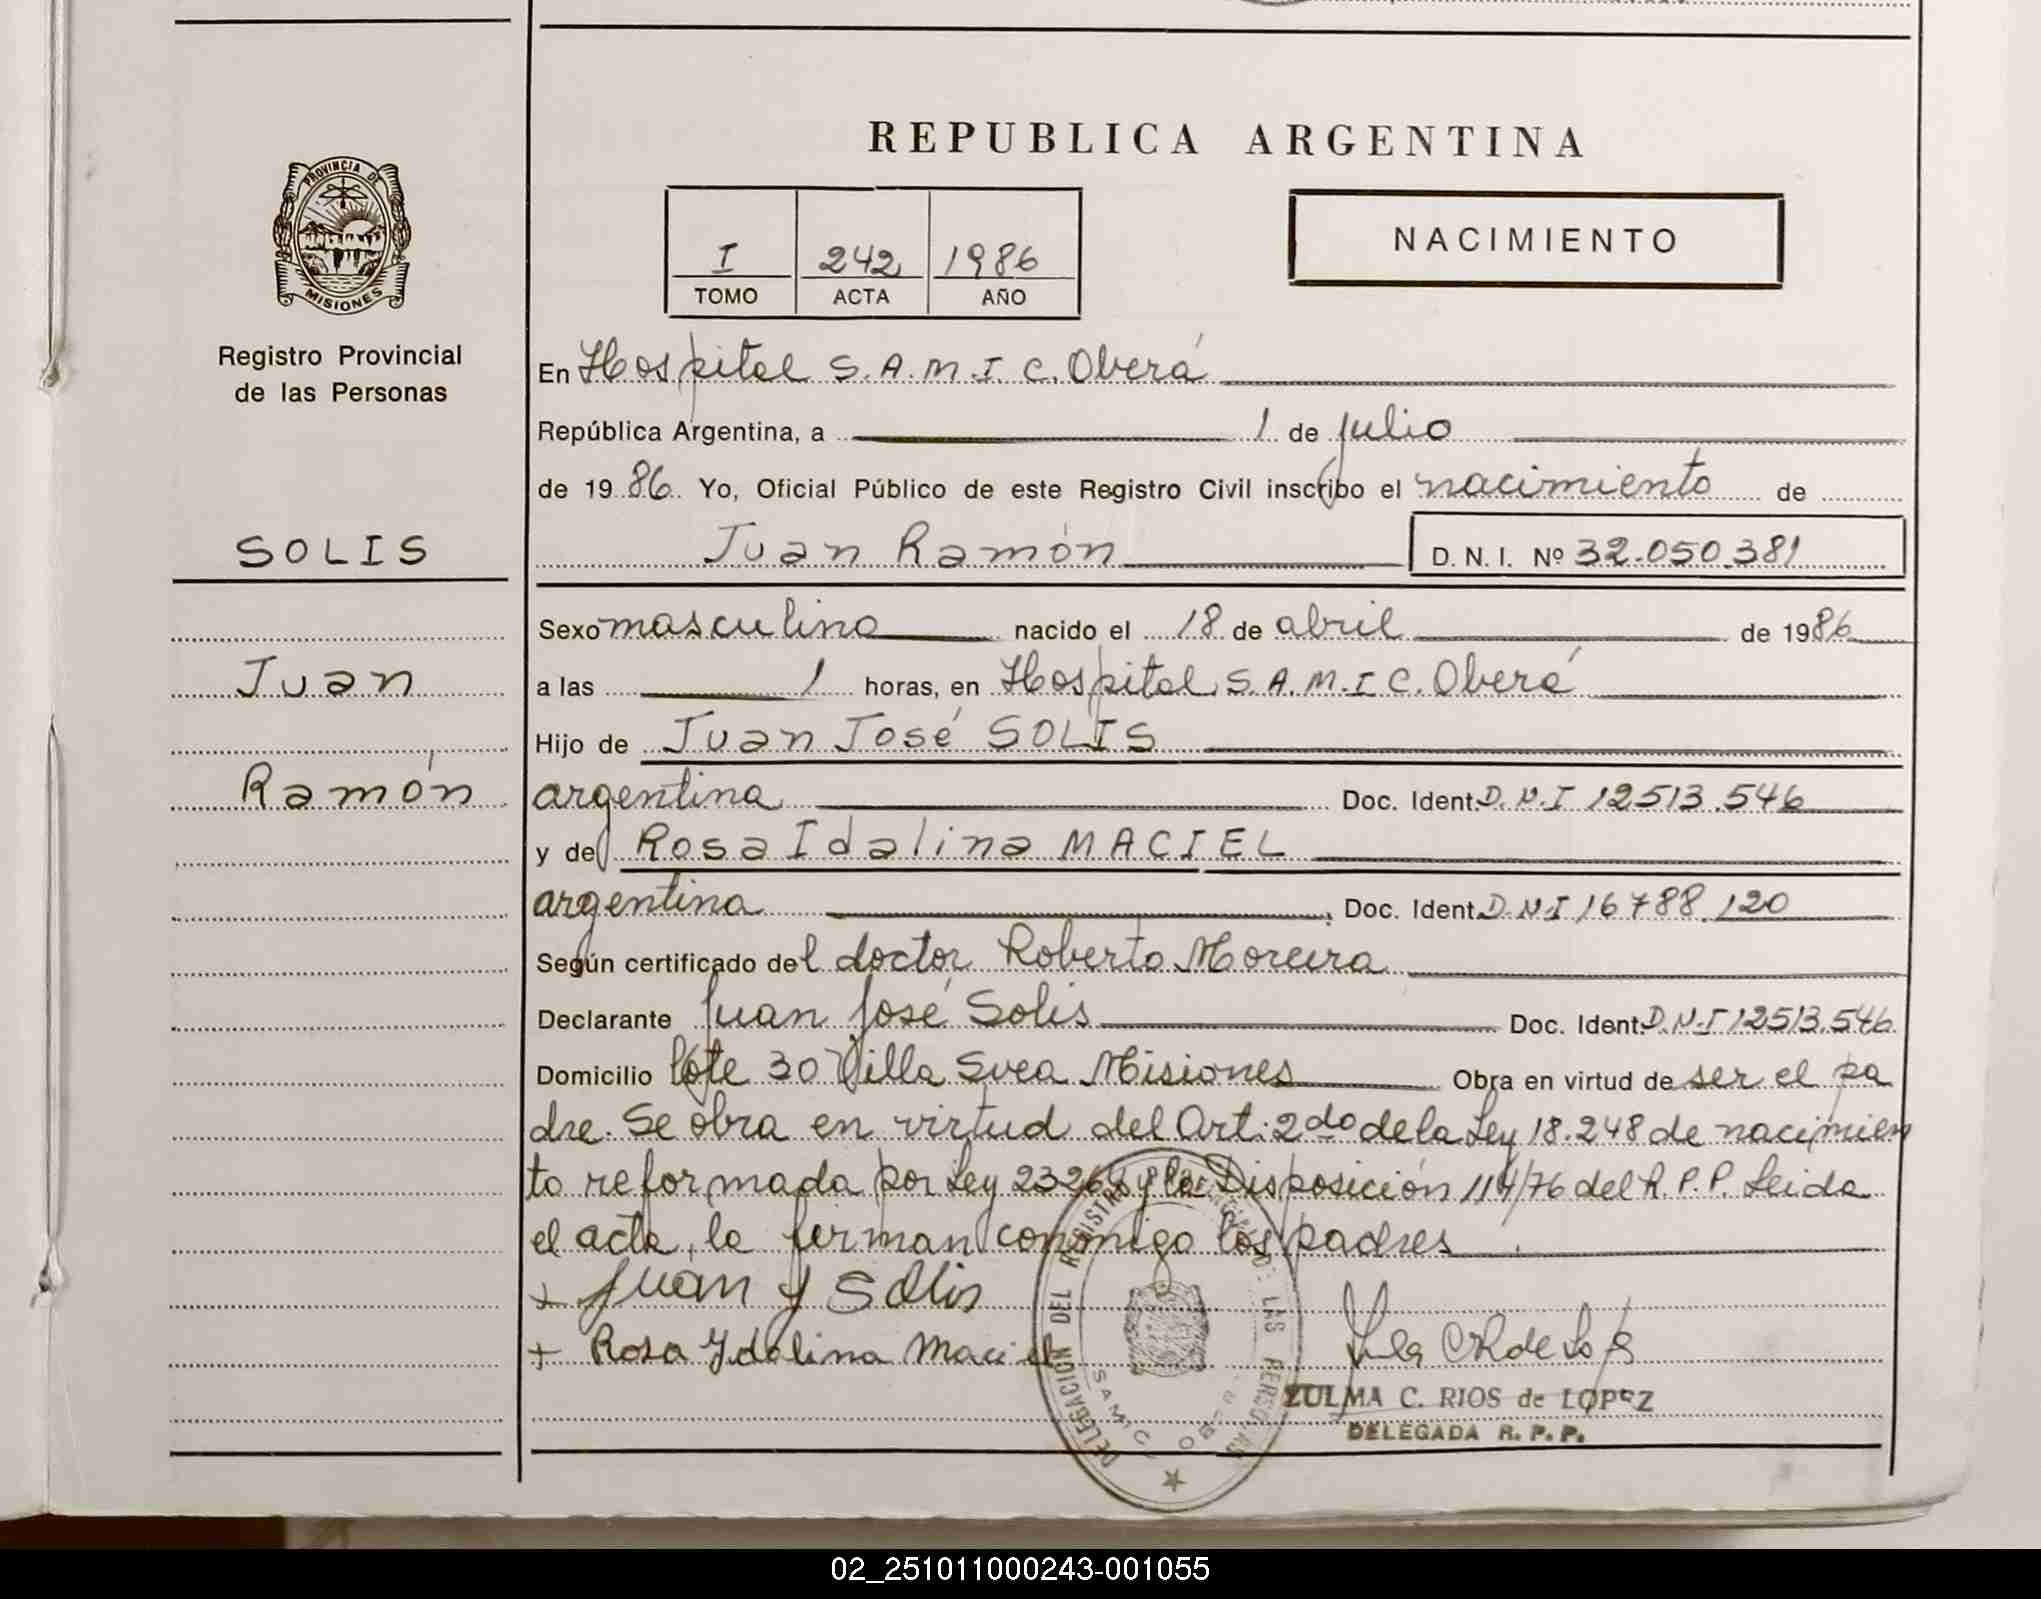 REPUBLICA ARGENTINA
PROVINCIA DE
MISIONES
Registro Provincial
de las Personas
I 242 1986
TOMO ACTA AÑO
NACIMIENTO
SOLIS
Juan
Ramón
En Hospital S.A.M.I.C. Oberá
República Argentina, a 1 de julio
de 1986. Yo, Oficial Público de este Registro Civil inscribo el nacimiento de
Juan Ramón D. N. I. Nº 32.050.381
Sexo masculino nacido el 18 de abril de 1986
a las 1 horas, en Hospital S.A.M.I C. Oberá
Hijo de Juan José SOLIS
argentina Doc. Ident. D.N.I 12513.546
y de Rosa Idalina MACIEL
argentina Doc. Ident. D.N.I 16788.120
Según certificado del doctor Roberto Moreira
Declarante Juan José Solis Doc. Ident. D.N.I 12513.546
Domicilio lote 30 Villa Svea Misiones Obra en virtud de ser el pa
dre. Se obra en virtud del Art. 2do de la Ley 18.248 de nacimien
to reformada por Ley y la Disposición 114/76 del R.P.P. Leida
el acta, la firman conmigo los padres
+ Juan J Solis
+ Rosa Ydalina Maciel
DELEGACION DEL REGISTRO PROVINCIAL DE LAS PERSONAS
SAMIC OBERA
ZULMA C. RIOS de LOPEZ
DELEGADA R. P. P.
02_251011000243-001055